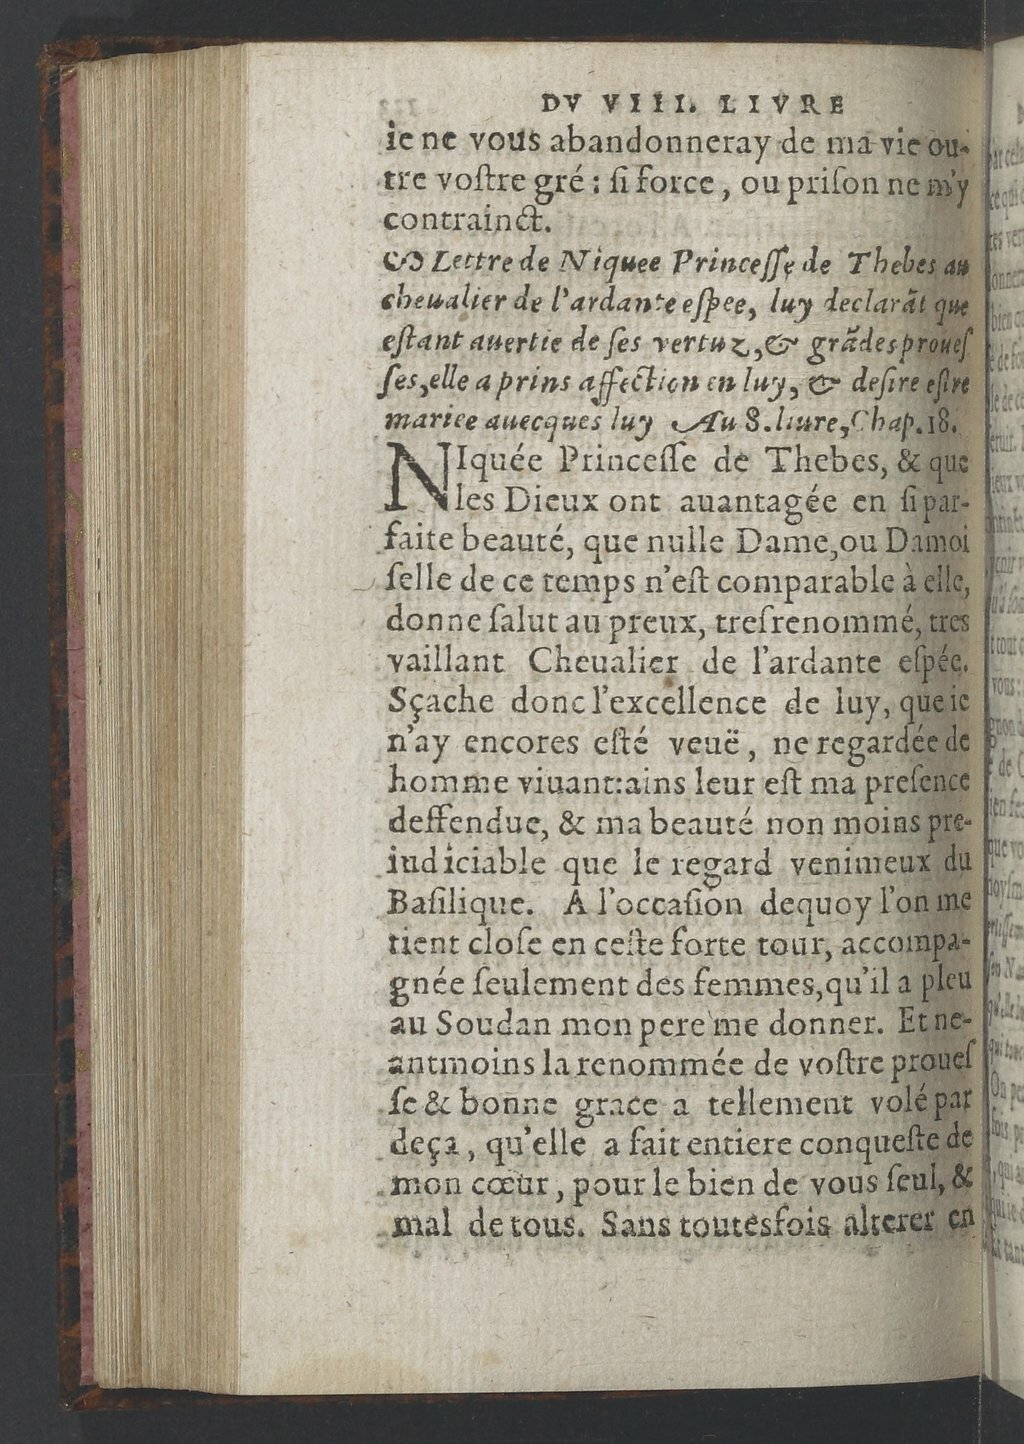 DV VIII. LIVRE
ie ne vous abandonneray de ma vie ou-
tre voſtre gré : ſi force, ou priſon ne m'y
contrainct.
Lettre de Niquee Princeſſe de Thebes au
cheualier de l'ardante eſpee, luy declarãt que
eſtant auertie de ſes vertuz, & grãdes proueſ
ſes, elle a prins affection en luy, & deſire eſtre
mariee auecques luy Au 8. liure, Chap. 18.
NIquée Princeſſe de Thebes, & que
les Dieux ont auantagée en ſi par-
faite beauté, que nulle Dame, ou Damoi
ſelle de ce temps n'eſt comparable à elle,
donne ſalut au preux, treſrenommé, tres
vaillant Cheualier de l'ardante eſpée.
Sçache donc l'excellence de luy, que ie
n'ay encores eſté veuë, ne regardée de
homme viuant: ains leur eſt ma preſence
deffendue, & ma beauté non moins pre-
iudiciable que le regard venimeux du
Baſilique. A l'occaſion dequoy l'on me
tient cloſe en ceſte forte tour, accompa-
gnée ſeulement des femmes, qu'il a pleu
au Soudan mon pere me donner. Et ne-
antmoins la renommée de voſtre proueſ
ſe & bonne grace a tellement volé par
deça, qu'elle a fait entiere conqueſte de
mon cœur, pour le bien de vous ſeul, &
mal de tous. Sans toutesfois alterer en